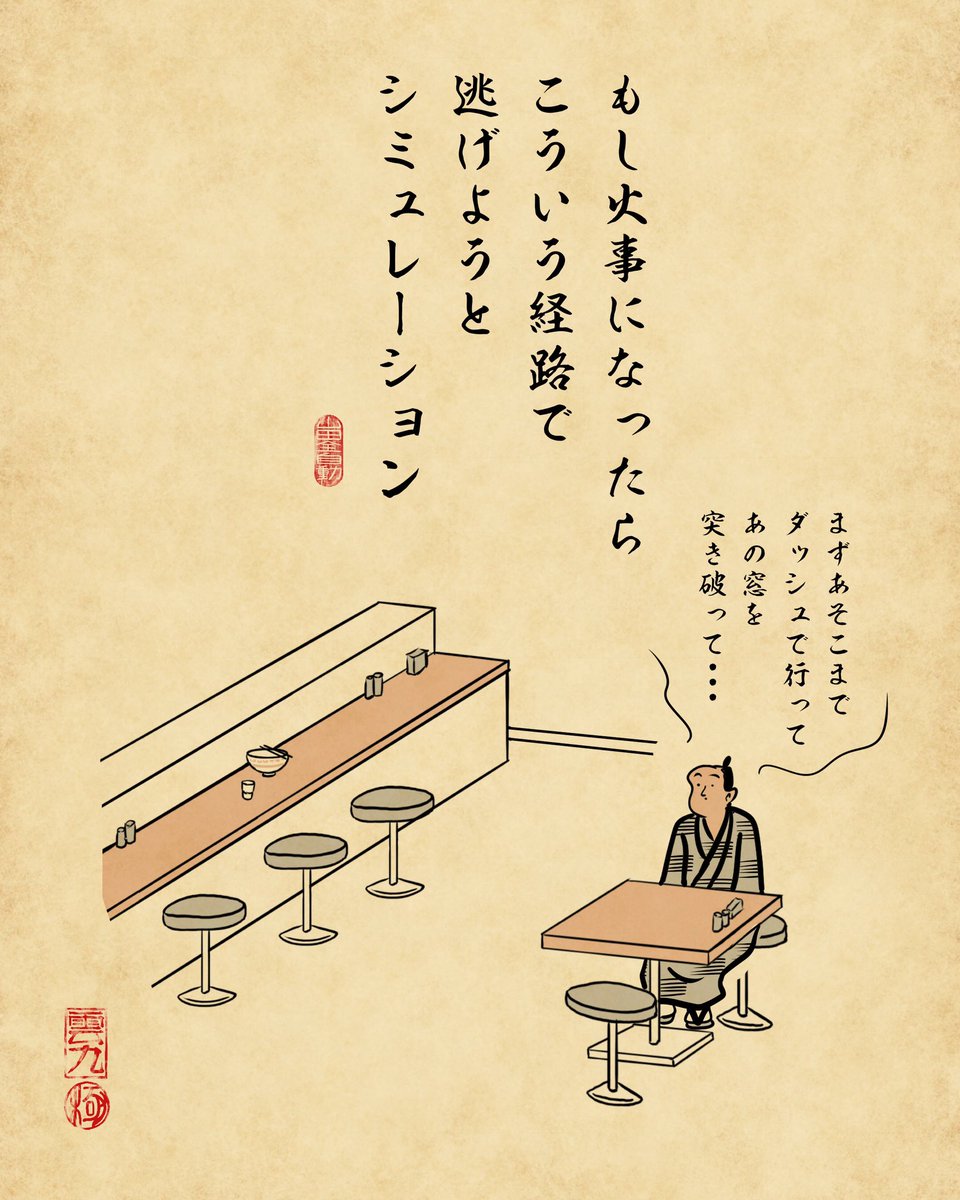 もし火事になったら
こういう経路で
逃げようと
シミュレーション
まずあそこまで
ダッシュで行って
あの窓を
突き破って・・・